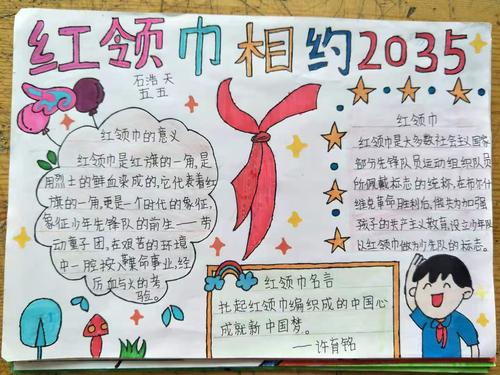 红领巾相约2035
石浩天
五五
红领巾的意义
红领巾是红旗的一角,是
用烈士的鲜血染成的,它代表着红
旗的一角,更是一个时代的象征,
象征少年先锋队的前生——劳
动童子团,在艰苦的环境
中一腔投入革命事业,经
历血与火的考
验。
红领巾
红领巾是大多数社会主义国家
部分先锋队员运动组织队员
所佩戴标志的统称,在布尔什
维克革命胜利后,做为加强
孩子的共产主义教育,设立少年队
以红领巾做为少先队的标志。
红领巾名言
托起红领巾编织成的中国心
成就新中国梦。
——许有铭